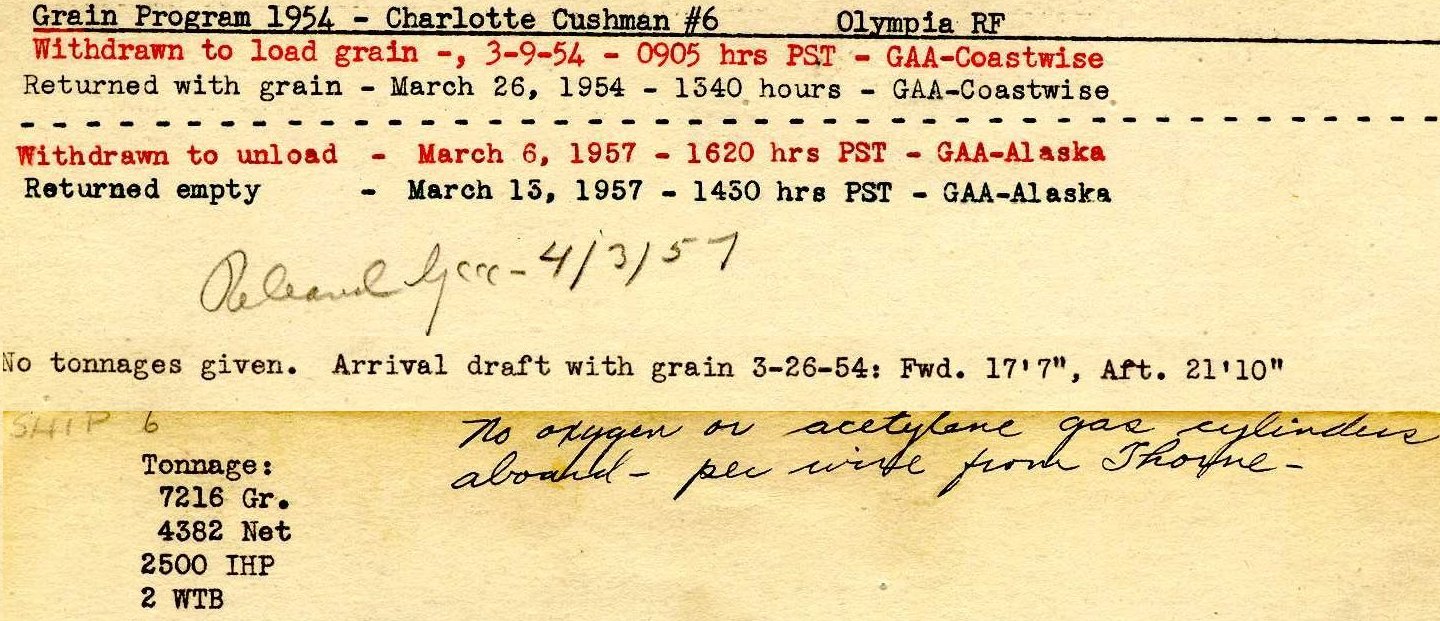 Grain Program 1954 - Charlotte Cushman #6 Olympia RF
Withdrawn to load grain -, 3-9-54 - 0905 hrs PST - GAA-Coastwise
Returned with grain - March 26, 1954 - 1340 hours - GAA-Coastwise
Withdrawn to unload - March 6, 1957 - 1620 hrs PST - GAA-Alaska
Returned empty - March 13, 1957 - 1430 hrs PST - GAA-Alaska
Released - 4/3/57
No tonnages given. Arrival draft with grain 3-26-54: Fwd. 17'7", Aft. 21'10"
SHIP 6
No oxygen or acetylene gas cylinders
aboard - per wire from Thorne -
Tonnage:
7216 Gr.
4382 Net
2500 IHP
2 WTB